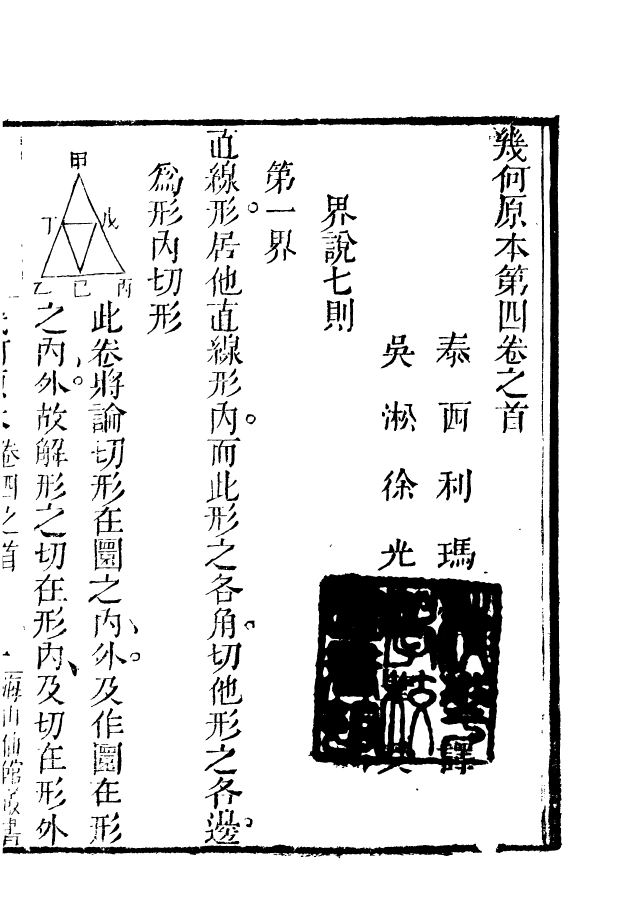 幾何原本第四卷之首
泰西利瑪
譯
吳淞徐光
界說七則
第一界
直線形居他直線形內。而此形之各角。切他形之各邊。
為形內切形
甲
丁
戊
乙
己
丙
此卷將論切形在圜之內、外。及作圜在形
之內、外。故解形之切在形內、及切在形外
卷四之首
海山仙館叢書